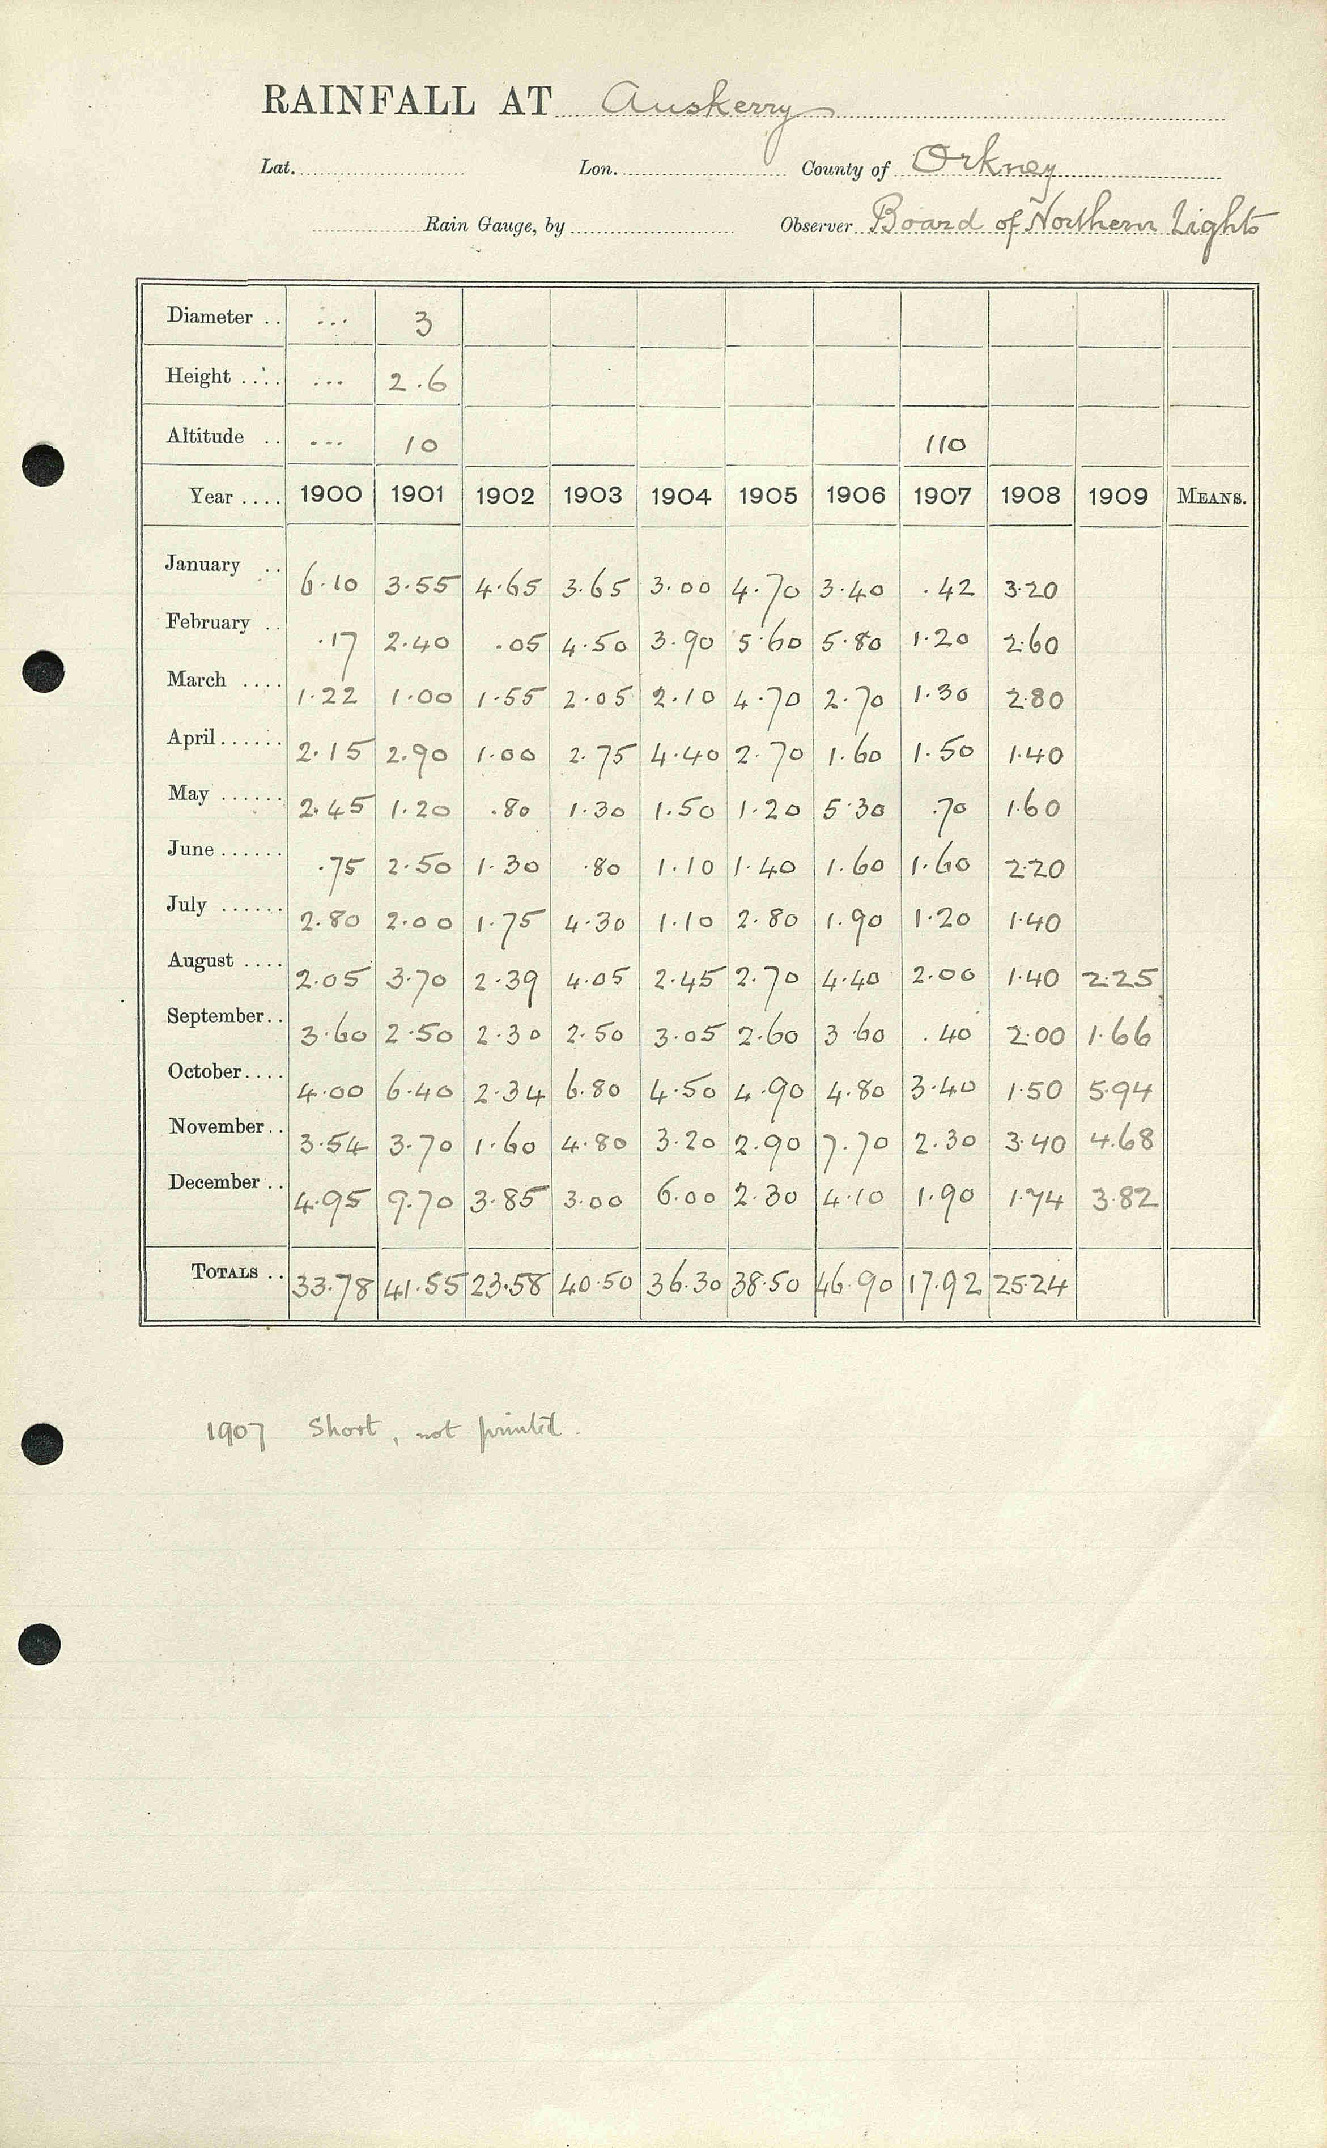 RAINFALL AT Auskerry
Lat. Lon. County of Orkney
Rain Gauge, by Observer Board of Northern Lights
Diameter .. ... 3
Height .... ... 2.6
Altitude .. ... 10 110
Year .... 1900 1901 1902 1903 1904 1905 1906 1907 1908 1909 MEANS.
January .. 6.10 3.55 4.65 3.65 3.00 4.70 3.40 .42 3.20
February .. .17 2.40 .05 4.50 3.90 5.60 5.80 1.20 2.60
March .... 1.22 1.00 1.55 2.05 2.10 4.70 2.70 1.30 2.80
April ...... 2.15 2.90 1.00 2.75 4.40 2.70 1.60 1.50 1.40
May ...... 2.45 1.20 .80 1.30 1.50 1.20 5.30 .70 1.60
June ...... .75 2.50 1.30 .80 1.10 1.40 1.60 1.60 2.20
July ...... 2.80 2.00 1.75 4.30 1.10 2.80 1.90 1.20 1.40
August .... 2.05 3.70 2.39 4.05 2.45 2.70 4.40 2.00 1.40 2.25
September.. 3.60 2.50 2.30 2.50 3.05 2.60 3.60 .40 2.00 1.66
October.... 4.00 6.40 2.34 6.80 4.50 4.90 4.80 3.40 1.50 5.94
November.. 3.54 3.70 1.60 4.80 3.20 2.90 7.70 2.30 3.40 4.68
December .. 4.95 9.70 3.85 3.00 6.00 2.30 4.10 1.90 1.74 3.82
TOTALS .. 33.78 41.55 23.58 40.50 36.30 38.50 46.90 17.92 25.24
1907 Short, not printed.